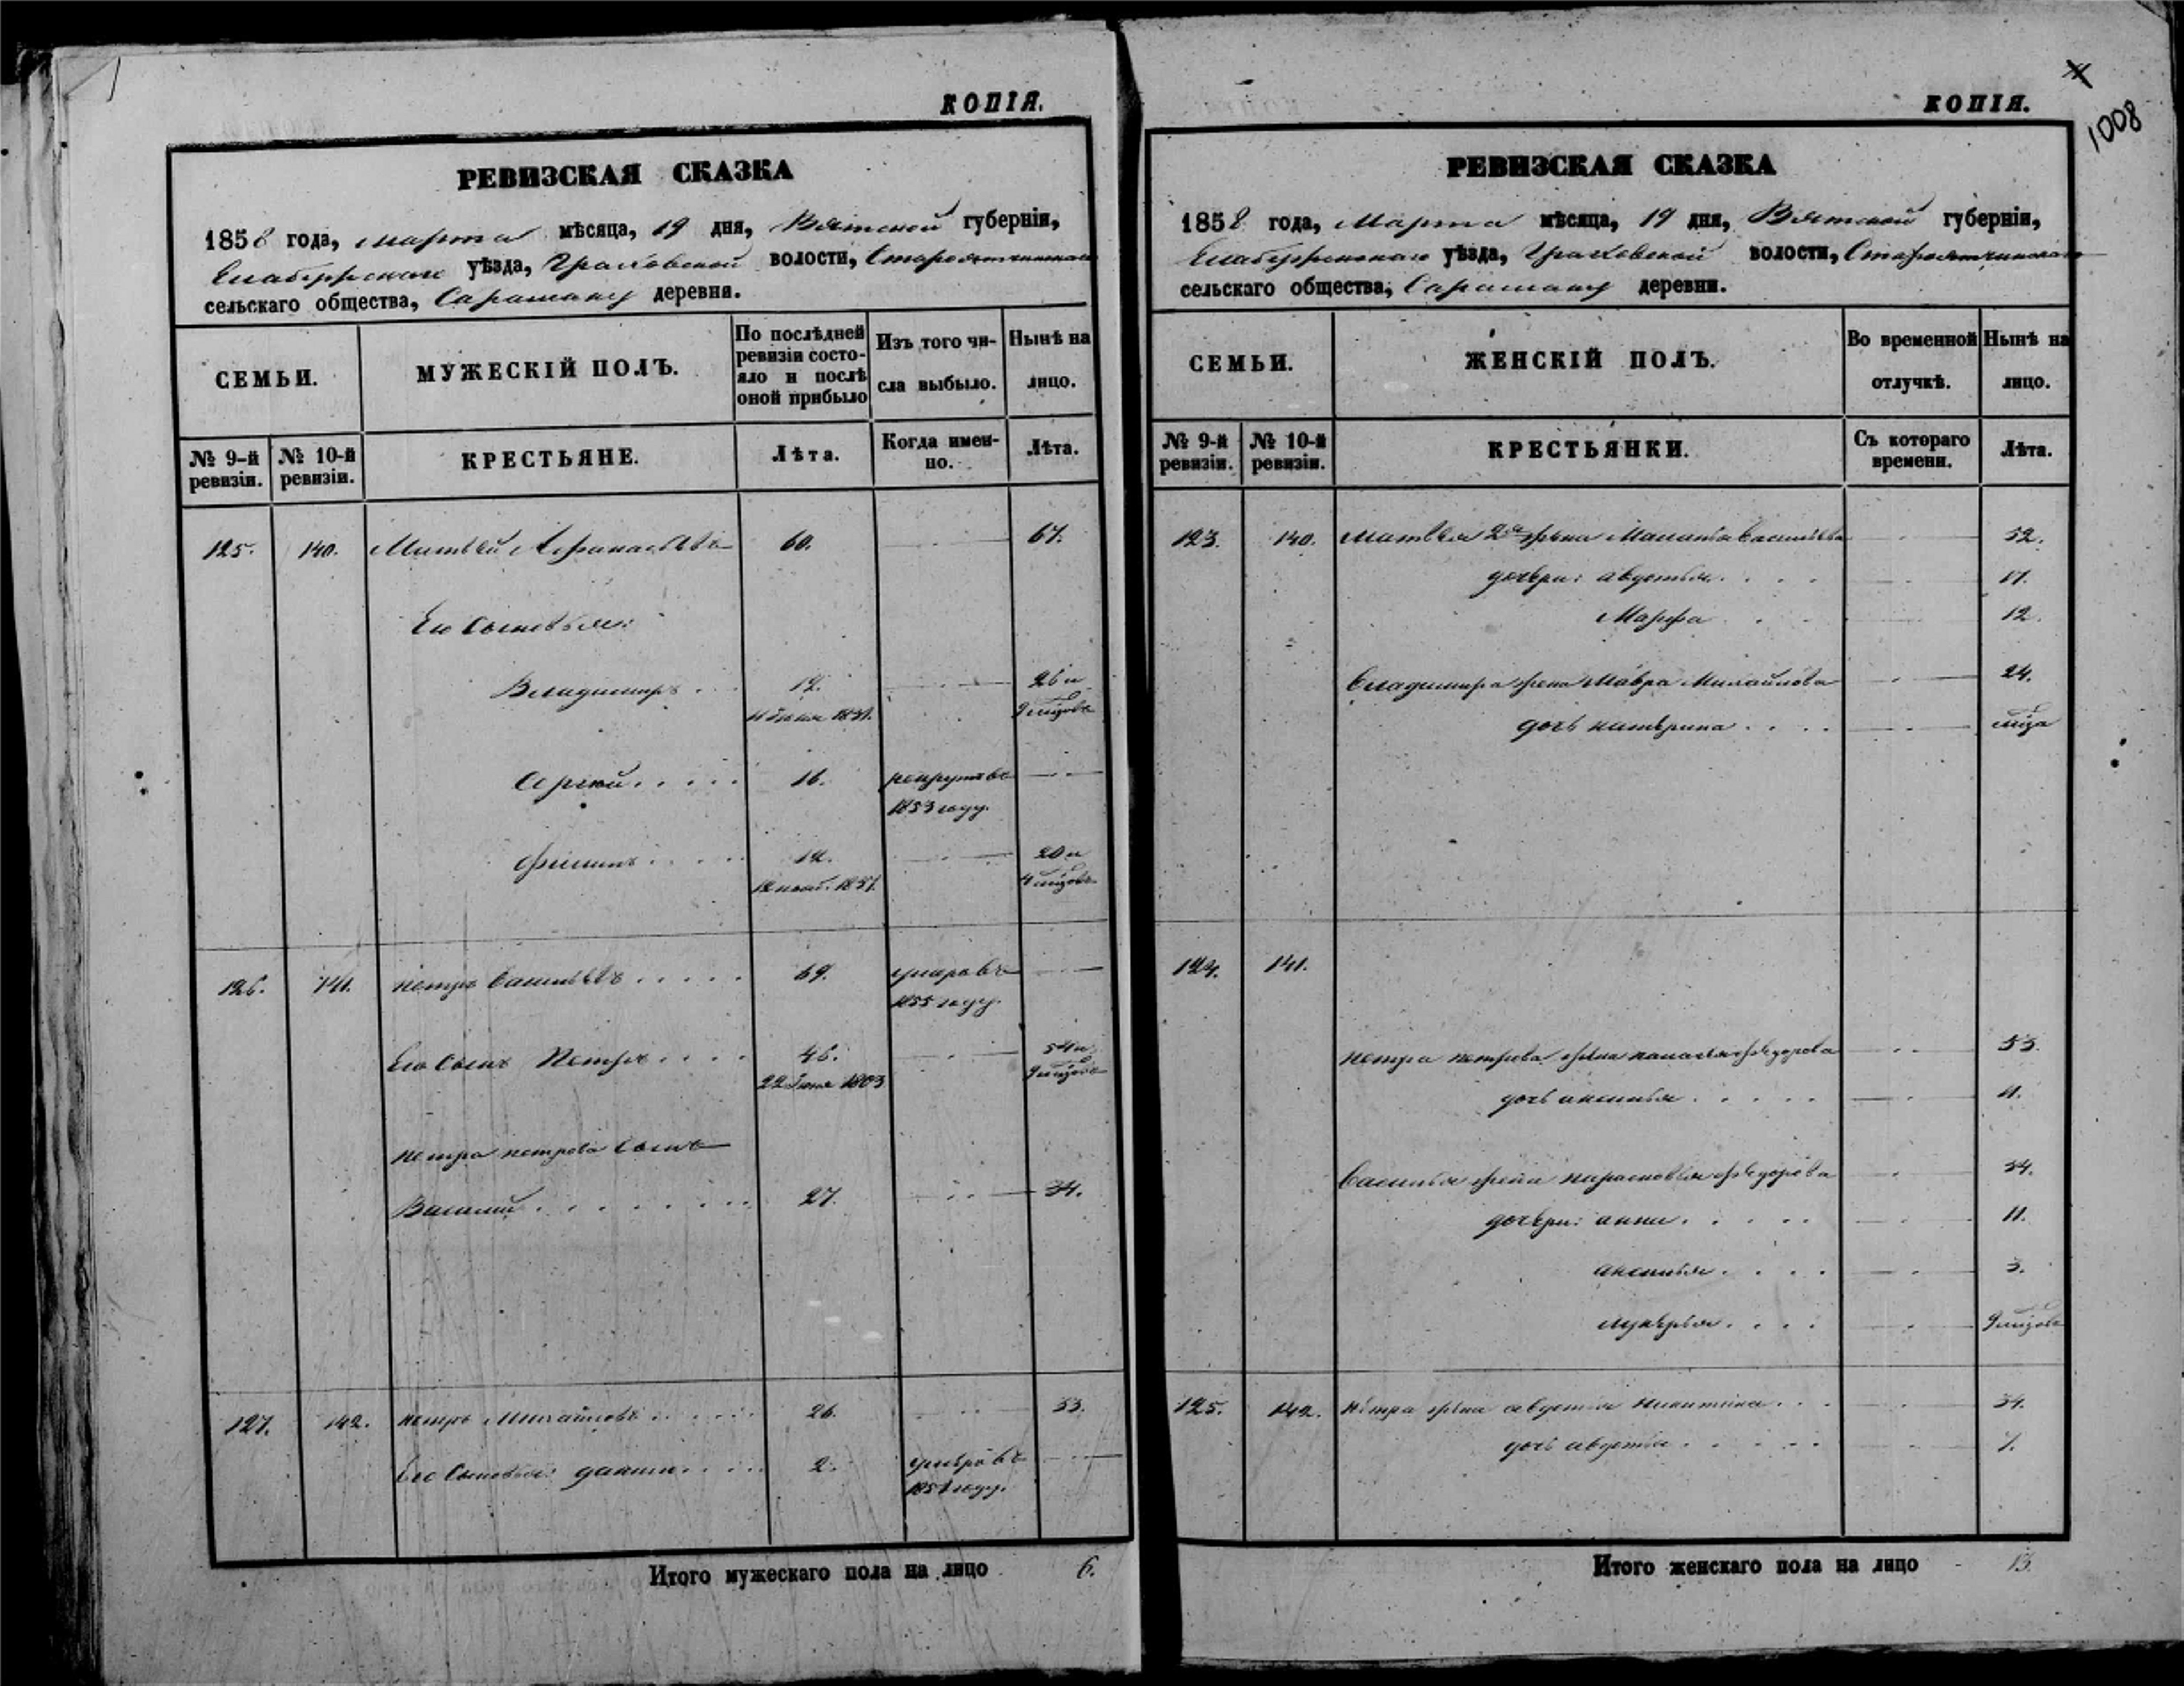 КОПІЯ.
РЕВИЗСКАЯ СКАЗКА
1858 года, марта мѣсяца, 19 дня, Вятской губерніи,
Елабужскаго уѣзда, Граховской волости, Староятчинскаго
сельскаго общества, Сарамаку деревни.
СЕМЬИ.
МУЖЕСКІЙ ПОЛЪ.
По послѣдней ревизіи состояло и послѣ оной прибыло
Изъ того числа выбыло.
Нынѣ на лицо.
№ 9-й ревизіи.
№ 10-й ревизіи.
КРЕСТЬЯНЕ.
Лѣта.
Когда именно.
Лѣта.
125. 140. Матвѣй Афанасьевъ 60. 67.
Его Сыновья:
Владимиръ 19. 26 и
11 Іюня 1831. 9 мѣсцовъ
Сергѣй 16. рекрутъ въ
1853 году.
Филипъ 12. 20 и
12 нояб. 1837. 4 мѣсцовъ
126. 141. Петръ Васильевъ 69. умеръ въ
1855 году.
Его Сынъ Петръ 46. 54 и
22 Іюня 1803 9 мѣсцовъ
Петра Петрова Сынъ
Василий 27. 34.
127. 142. Петръ Михайловъ 26. 33.
Его Сыновья: 2. умеръ въ
году.
Итого мужескаго пола на лицо 6.
КОПІЯ.
1008
РЕВИЗСКАЯ СКАЗКА
1858 года, Марта мѣсяца, 19 дня, Вятской губерніи,
Елабужскаго уѣзда, Граховской волости, Староятчинскаго
сельскаго общества, Сарамаку деревни.
СЕМЬИ.
ЖЕНСКІЙ ПОЛЪ.
Во временной отлучкѣ.
Нынѣ на лицо.
№ 9-й ревизіи.
№ 10-й ревизіи.
КРЕСТЬЯНКИ.
Съ котораго времени.
Лѣта.
123. 140. Матвѣя 2я жена Маланья Васильева 52.
дочери: Авдотья 17.
Марфа 12.
Владимира жена Мавра Михайлова 24.
дочь Катерина мѣсца
124. 141.
Петра Петрова жена Федорова 53.
дочь Аксинья 11.
Василья жена Парасковья Федорова 34.
дочери: Анна 11.
Аксинья 3.
Лукерья 9 мѣсцовъ
125. 142. Петра жена Авдотья Никитина 34.
дочь Авдотья 7.
Итого женскаго пола на лицо 13.